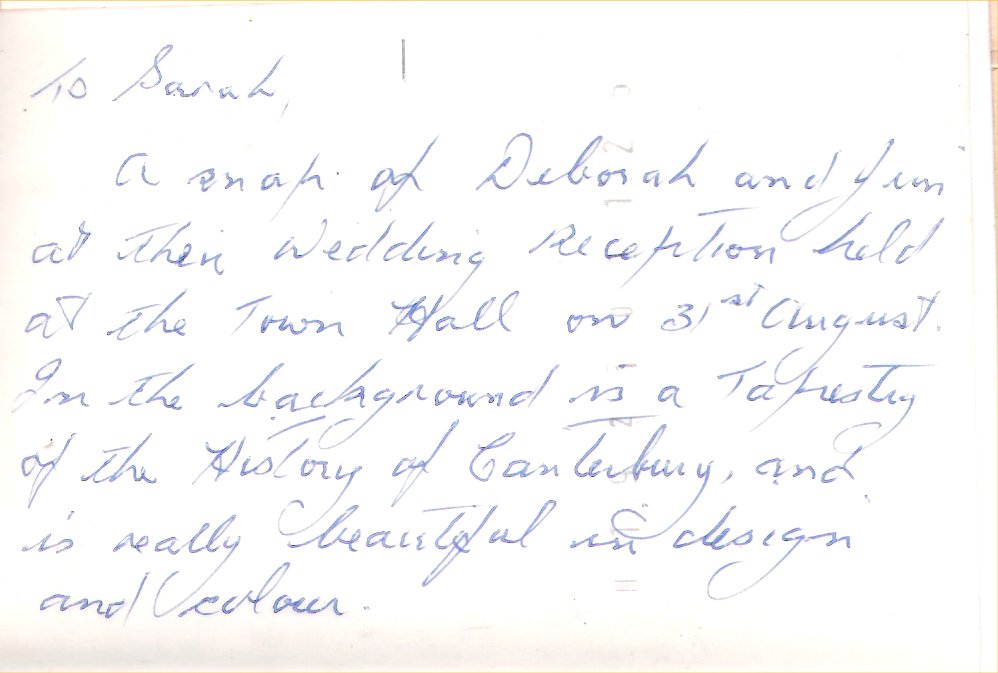 To Sarah,
A snap of Deborah and Jim
at their Wedding Reception held
at the Town Hall on 31st August.
In the background is a Tapestry
of the History of Canterbury, and
is really beautiful in design
and colour.